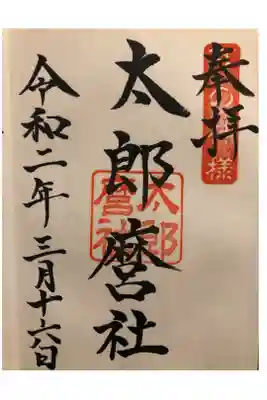 奉拝
太郎麿社
太郎
麿社
令和二年三月十六日